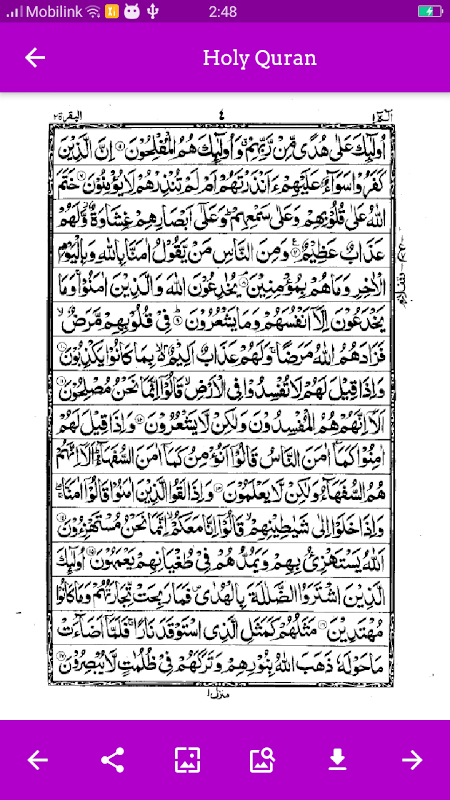 Mobilink 2:48
Holy Quran
البقرة ٢ ٤ الٓمّٓ ١
اُولٰٓئِكَ عَلٰى هُدًى مِّنْ رَّبِّهِمْ ۙ وَاُولٰٓئِكَ هُمُ الْمُفْلِحُوْنَ ۝۵ اِنَّ الَّذِيْنَ
كَفَرُوْا سَوَآءٌ عَلَيْهِمْ ءَاَنْذَرْتَهُمْ اَمْ لَمْ تُنْذِرْهُمْ لَا يُؤْمِنُوْنَ ۝۶ خَتَمَ
اللّٰهُ عَلٰى قُلُوْبِهِمْ وَعَلٰى سَمْعِهِمْ ؕ وَعَلٰٓى اَبْصَارِهِمْ غِشَاوَةٌ ؗ وَّلَهُمْ
عَذَابٌ عَظِيْمٌ ۝۷ وَمِنَ النَّاسِ مَنْ يَّقُوْلُ اٰمَنَّا بِاللّٰهِ وَبِالْيَوْمِ
الْاٰخِرِ وَمَا هُمْ بِمُؤْمِنِيْنَ ۝۸ يُخٰدِعُوْنَ اللّٰهَ وَالَّذِيْنَ اٰمَنُوْا ۚ وَمَا
يَخْدَعُوْنَ اِلَّاۤ اَنْفُسَهُمْ وَمَا يَشْعُرُوْنَ ۝۹ فِيْ قُلُوْبِهِمْ مَّرَضٌ ۙ
فَزَادَهُمُ اللّٰهُ مَرَضًا ۚ وَلَهُمْ عَذَابٌ اَلِيْمٌ ۙ بِمَا كَانُوْا يَكْذِبُوْنَ ۝۱۰
وَاِذَا قِيْلَ لَهُمْ لَا تُفْسِدُوْا فِى الْاَرْضِ ۙ قَالُوْۤا اِنَّمَا نَحْنُ مُصْلِحُوْنَ ۝۱۱
اَلَاۤ اِنَّهُمْ هُمُ الْمُفْسِدُوْنَ وَلٰكِنْ لَّا يَشْعُرُوْنَ ۝۱۲ وَاِذَا قِيْلَ لَهُمْ
اٰمِنُوْا كَمَاۤ اٰمَنَ النَّاسُ قَالُوْۤا اَنُؤْمِنُ كَمَاۤ اٰمَنَ السُّفَهَآءُ ؕ اَلَاۤ اِنَّهُمْ
هُمُ السُّفَهَآءُ وَلٰكِنْ لَّا يَعْلَمُوْنَ ۝۱۳ وَاِذَا لَقُوا الَّذِيْنَ اٰمَنُوْا قَالُوْۤا اٰمَنَّا ۖۚ
وَاِذَا خَلَوْا اِلٰى شَيٰطِيْنِهِمْ ۙ قَالُوْۤا اِنَّا مَعَكُمْ ۙ اِنَّمَا نَحْنُ مُسْتَهْزِءُوْنَ ۝۱۴
اَللّٰهُ يَسْتَهْزِئُ بِهِمْ وَيَمُدُّهُمْ فِيْ طُغْيَانِهِمْ يَعْمَهُوْنَ ۝۱۵ اُولٰٓئِكَ
الَّذِيْنَ اشْتَرَوُا الضَّلٰلَةَ بِالْهُدٰى ۪ فَمَا رَبِحَتْ تِّجَارَتُهُمْ وَمَا كَانُوْا
مُهْتَدِيْنَ ۝۱۶ مَثَلُهُمْ كَمَثَلِ الَّذِى اسْتَوْقَدَ نَارًا ۚ فَلَمَّاۤ اَضَآءَتْ
مَا حَوْلَهٗ ذَهَبَ اللّٰهُ بِنُوْرِهِمْ وَتَرَكَهُمْ فِيْ ظُلُمٰتٍ لَّا يُبْصِرُوْنَ ۝۱۷
منزل ١